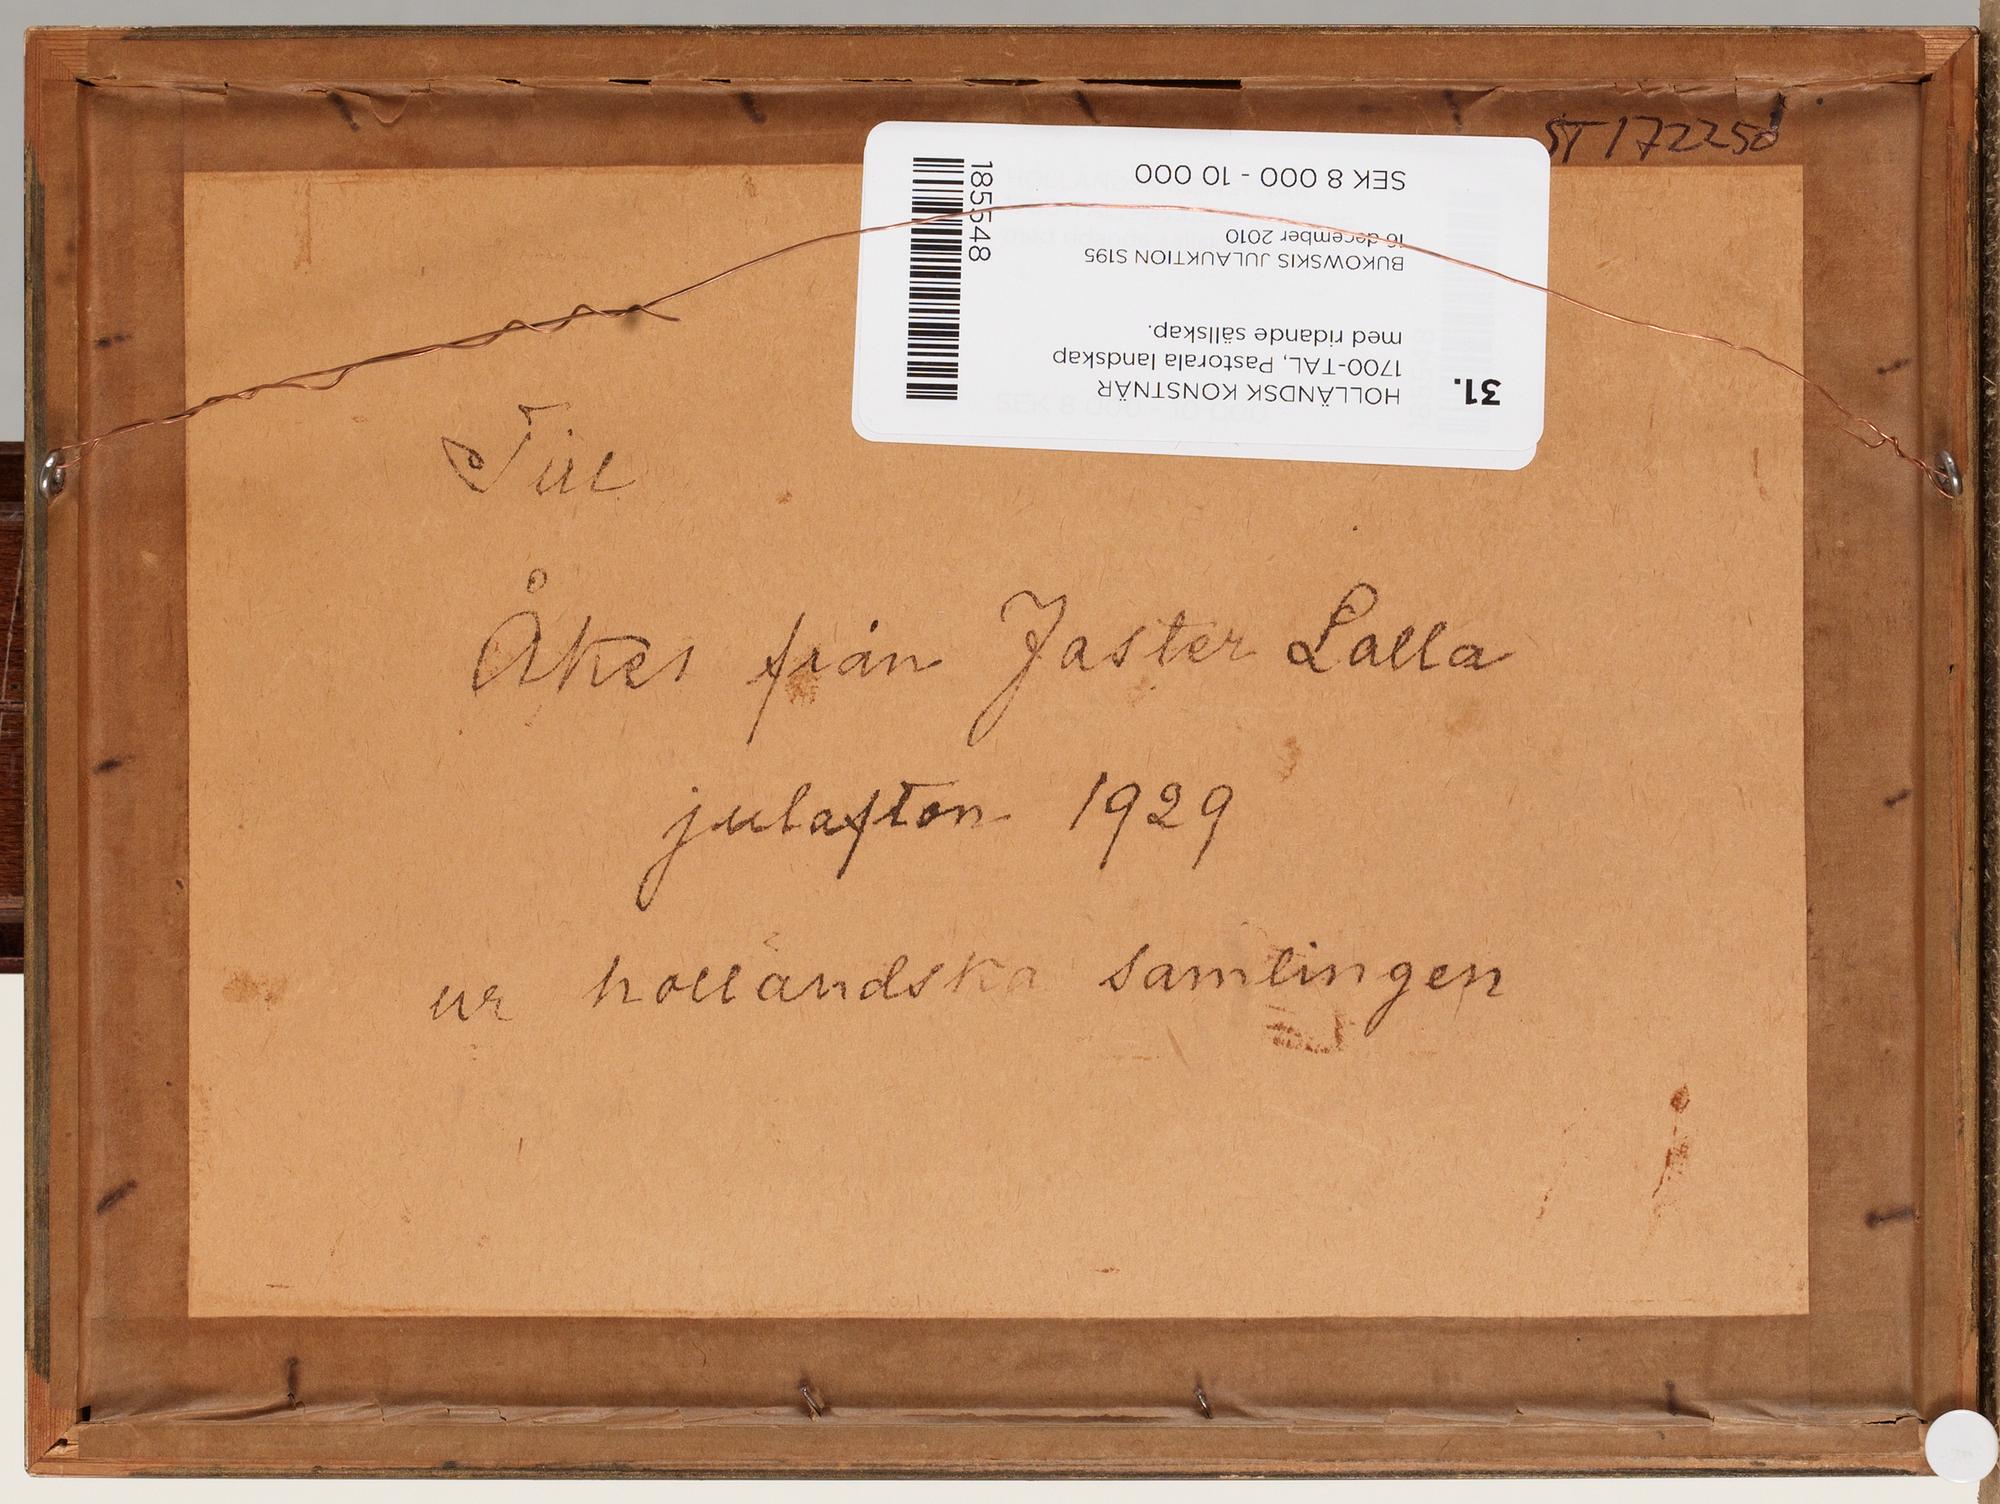 ST 172250
31.
HOLLÄNDSK KONSTNÄR
1700-TAL, Pastorala landskap
med ridande sällskap.
BUKOWSKIS JULAUKTION S195
16 december 2010
SEK 8 000 - 10 000
185548
Till
Åkes från Faster Lalla
julafton 1929
ur holländska samlingen